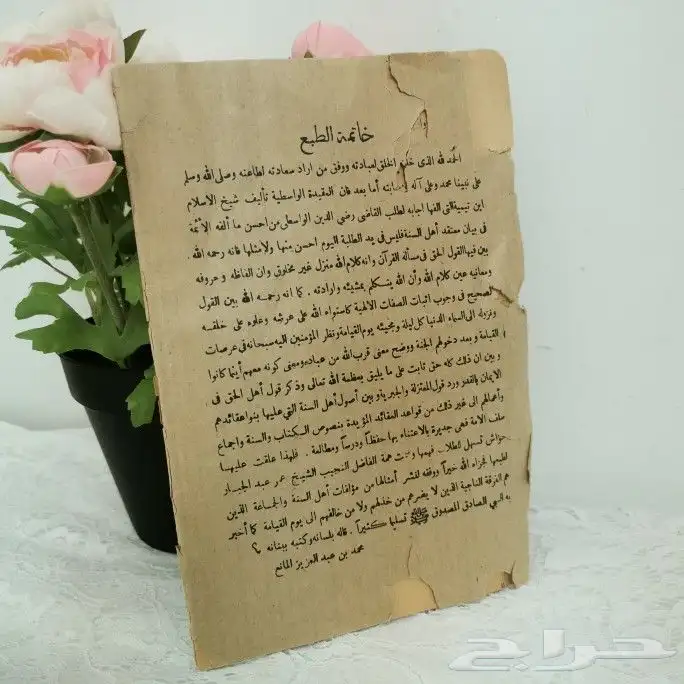 خاتمة الطبع
الحمد لله الذى خلق الخلق لعبادته ووفق من اراد سعادته لطاعته وصلى الله وسلم
على نبينا محمد وعلى آله أما بعد فان العقيدة الواسطية تأليف شيخ الاسلام
ابن تيمية التى الفها اجابه لطلب القاضى رضي الدين الواسطى من احسن ما ألفه الأئمة
فى بيان معتقد أهل السنة فليس فى يد الطلبة اليوم احسن منها ولا مثلها فانه رحمه الله .
بين فيها القول الحق فى مسألة القرآن وانه كلام الله منزل غير مخلوق وان الفاظه وحروفه
ومعانيه عين كلام الله وأن الله يتسكلم بمشيئته وارادته . كما انه رحمه الله بين القول
الصحيح فى وجوب اثبات الصفات الالهية كاستواء الله على عرشه وعلوه على خلقه
ونزوله الى السماء الدنيا كل ليلة ومجيئه يوم القيامة ونظر المؤمنين اليه سبحانه فى عرصات
القيامة وبعد دخولهم الجنة ووضح معنى قرب الله من عباده ومعنى كونه معهم أينما كانوا
وبين ان ذلك كله حق ثابت على ما يليق بعظمة الله تعالى وذكر قول أهل الحق فى
الايمان بالقدر ورد قول المعتزلة والجبرية وبين أصول أهل السنة التي عليها بنوا عقائدهم
وأعمالهم الى غير ذلك من قواعد العقائد المؤيدة بنصوص الكتاب والسنة واجماع
سلف الامة فهى جديرة بالاعتناء بها حفظاً ودرساً ومطالعة . فلهذا علقت عليها
حواش تسهل للطلاب فهمها همة الفاضل النجيب الشيخ عمر عبد الجبار
لطبعها فجزاه الله خيراً ووفقه لنشر أمثالها من مؤلفات أهل السنة والجماعة الذين
هم الفرقة الناجية الذين لا يضرهم من خذلهم ولا من خالفهم الى يوم القيامة كما أخبر
به النبي الصادق المصدوق ﷺ تسليما كثيراً . قاله بلسانه وكتبه ببنانه
محمد بن عبد العزيز المانع
حراج